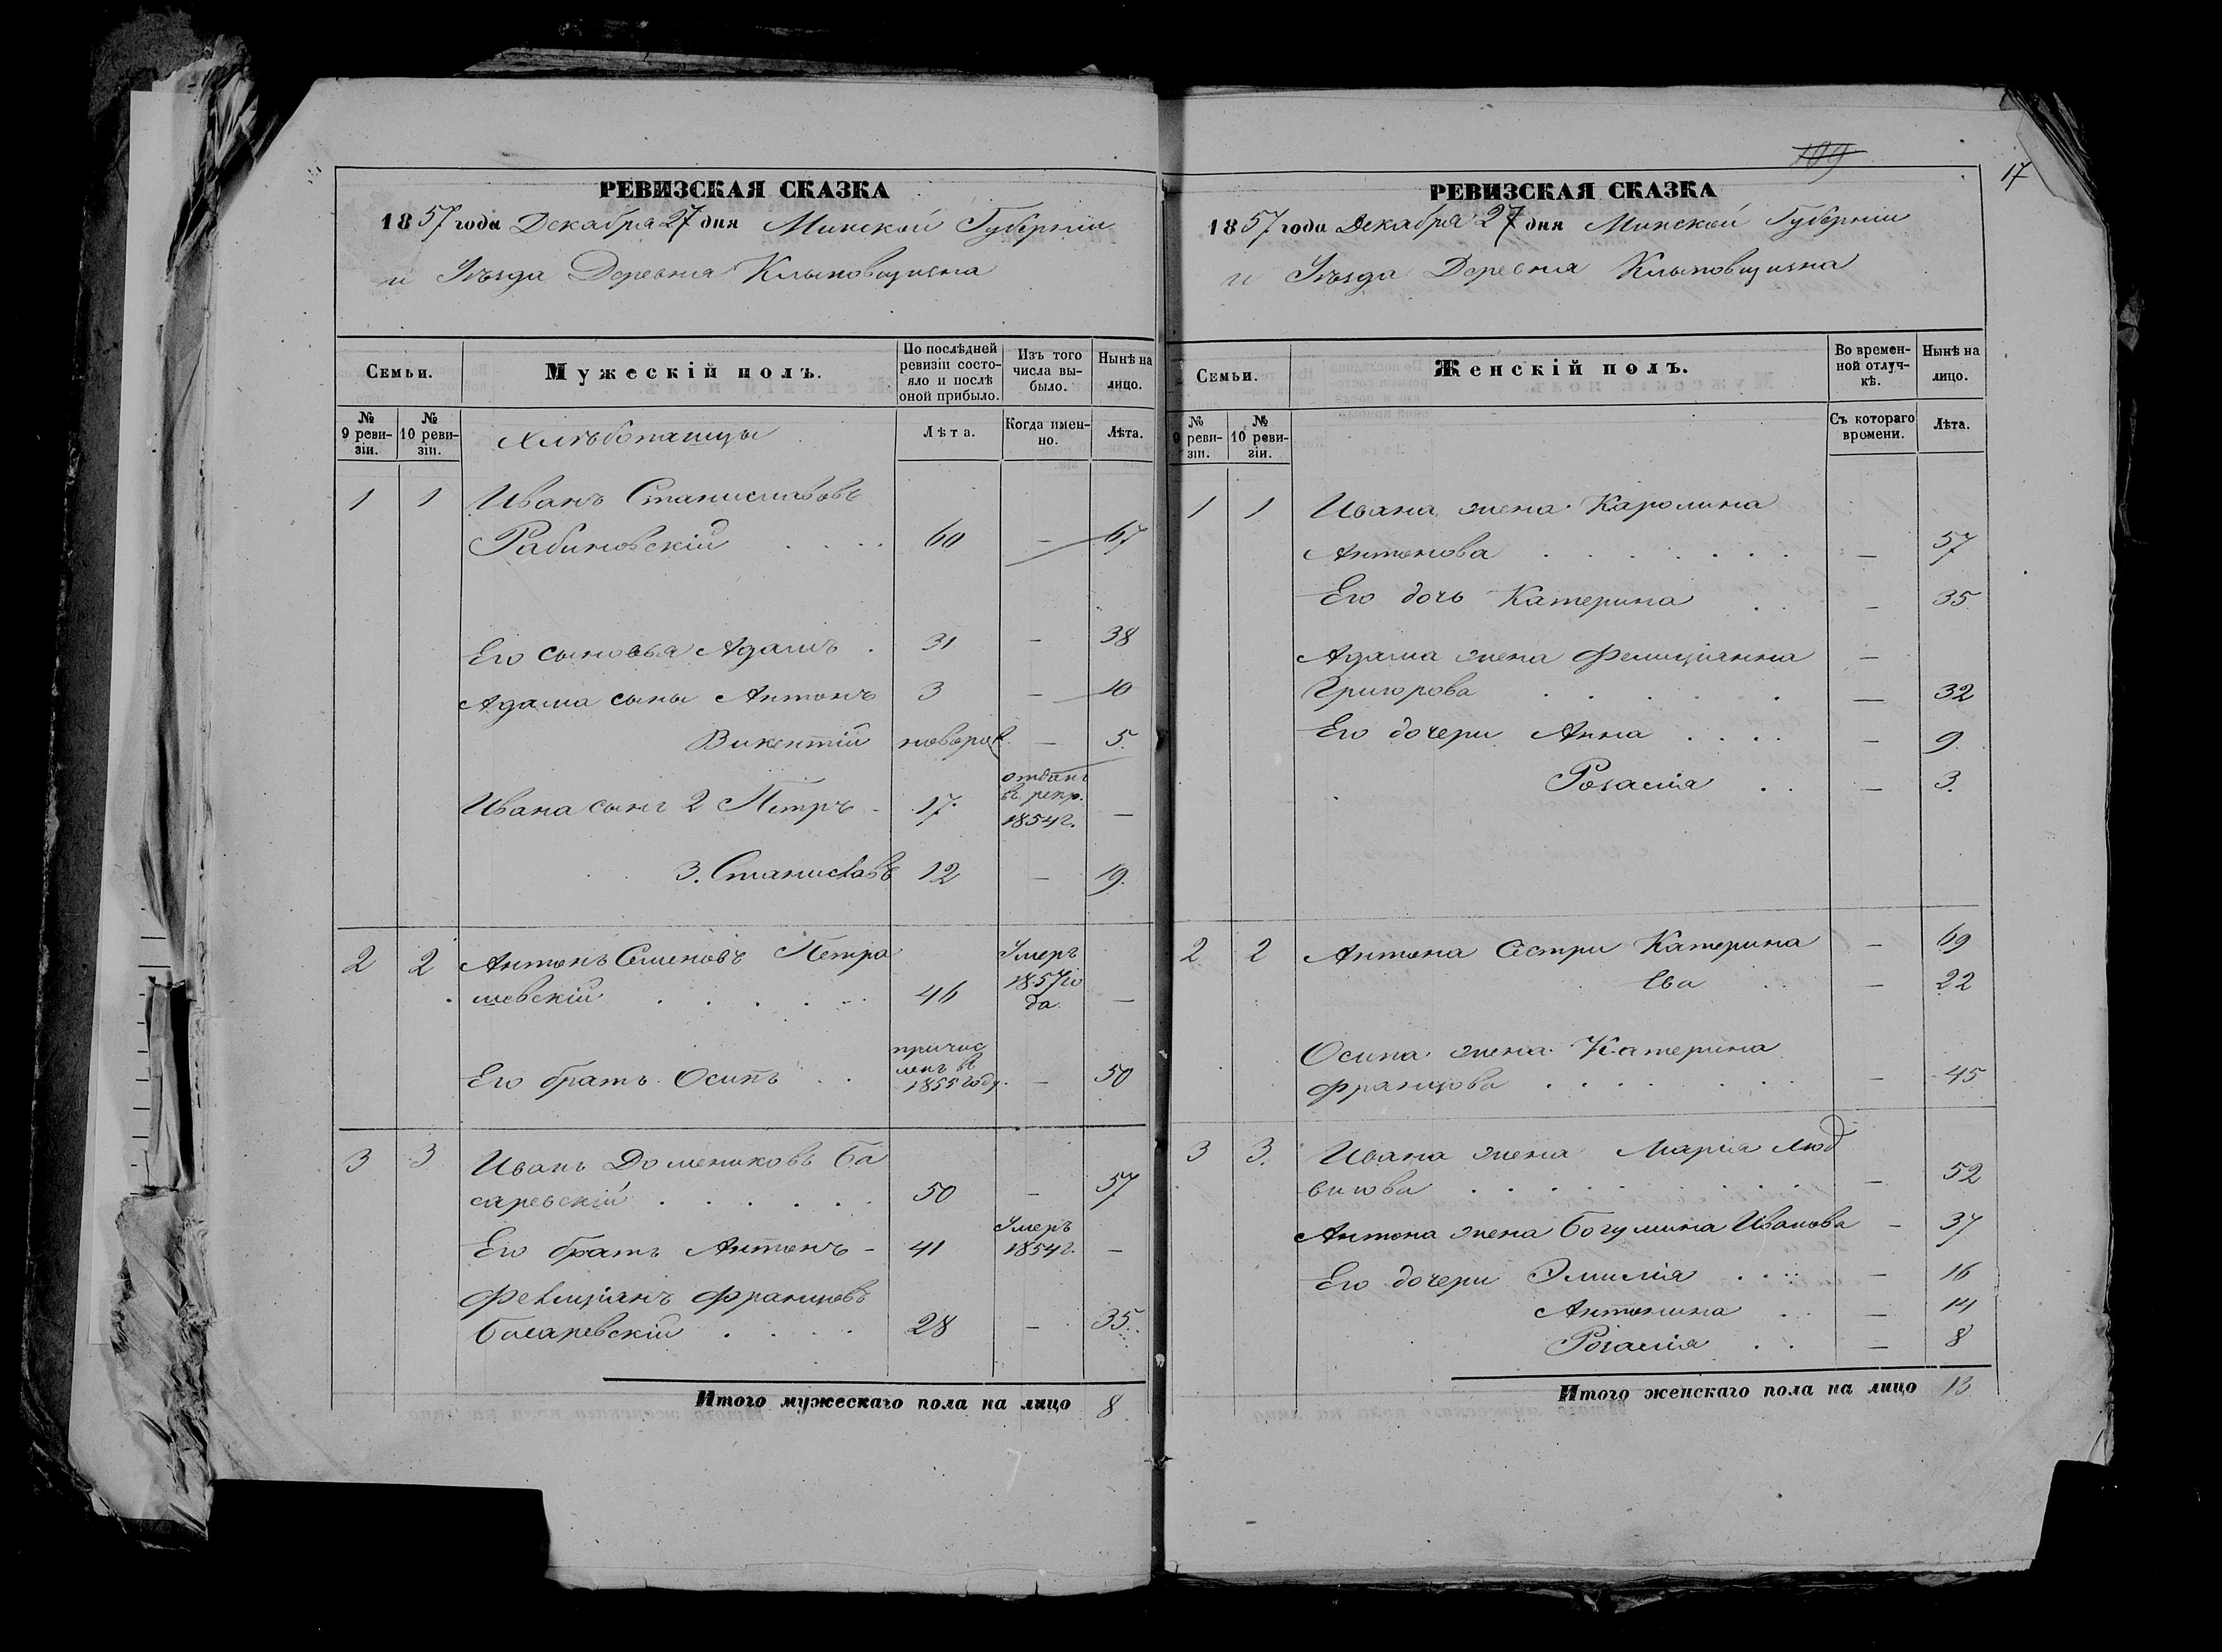 109
17
РЕВИЗСКАЯ СКАЗКА
1857 года Декабря 27 дня Минской Губернии
и Уѣзда Деревня Клыповщизна
Семьи.
Мужескій полъ.
По послѣдней ревизіи состояло и послѣ оной прибыло.
Изъ того числа выбыло.
Нынѣ на лицо.
№ 9 ревизіи.
№ 10 ревизіи.
Хлѣбопашцы
Лѣта.
Когда именно.
Лѣта.
1 1 Иванъ Станиславовъ
Рабиновскій 60 — 67
Его сыновья Адамъ 31 — 38
Адама сыны Антонъ 3 — 10
Викентій новорож — 5
Ивана сынъ 2 Петръ 17 отданъ въ рекр. 1854 г. —
3. Станиславъ 12 — 19.
2 2 Антонъ Семеновъ Петра
шевскій 46 Умеръ 1857 го да —
Его братъ Осипъ причис ленъ въ 1855 году. — 50
3 3 Иванъ Домениковъ Ба
саревскій 50 — 57
Его братъ Антонъ 41 Умеръ 1854 г. —
Фелиціанъ Францовъ
Басаревскій 28 — 35
Итого мужескаго пола на лицо 8
РЕВИЗСКАЯ СКАЗКА
1857 года Декабря 27 дня Минской Губернии
и Уѣзда Деревня Клыповщизна
Семьи.
Женскій полъ.
Во временной отлучкѣ.
Нынѣ на лицо.
№ 9 ревизіи.
№ 10 ревизіи.
Съ котораго времени.
Лѣта.
1 1 Ивана жена Каролина
Антонова — 57
Его дочь Катерина — 35
Адама жена Фелиціянна —
Григорова — 32
Его дочери Анна — 9
Розалія — 3.
2 2 Антона Сестри Катерина — 69
Ева — 22
Осипа жена Катерина
Францова — 45
3 3. Ивана жена Марія Люд
вигова — 52
Антона жена Богумила Иванова — 37
Его дочери Эмилія — 16
Антонина — 14
Розалія — 8
Итого женскаго пола на лицо 13